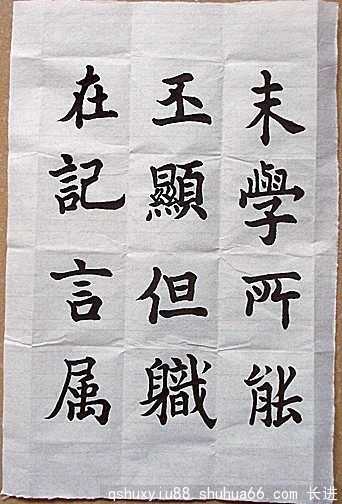 末學所能
丕顯但軄
在記言属
qshuxyiu88 shuhua66.com 长进